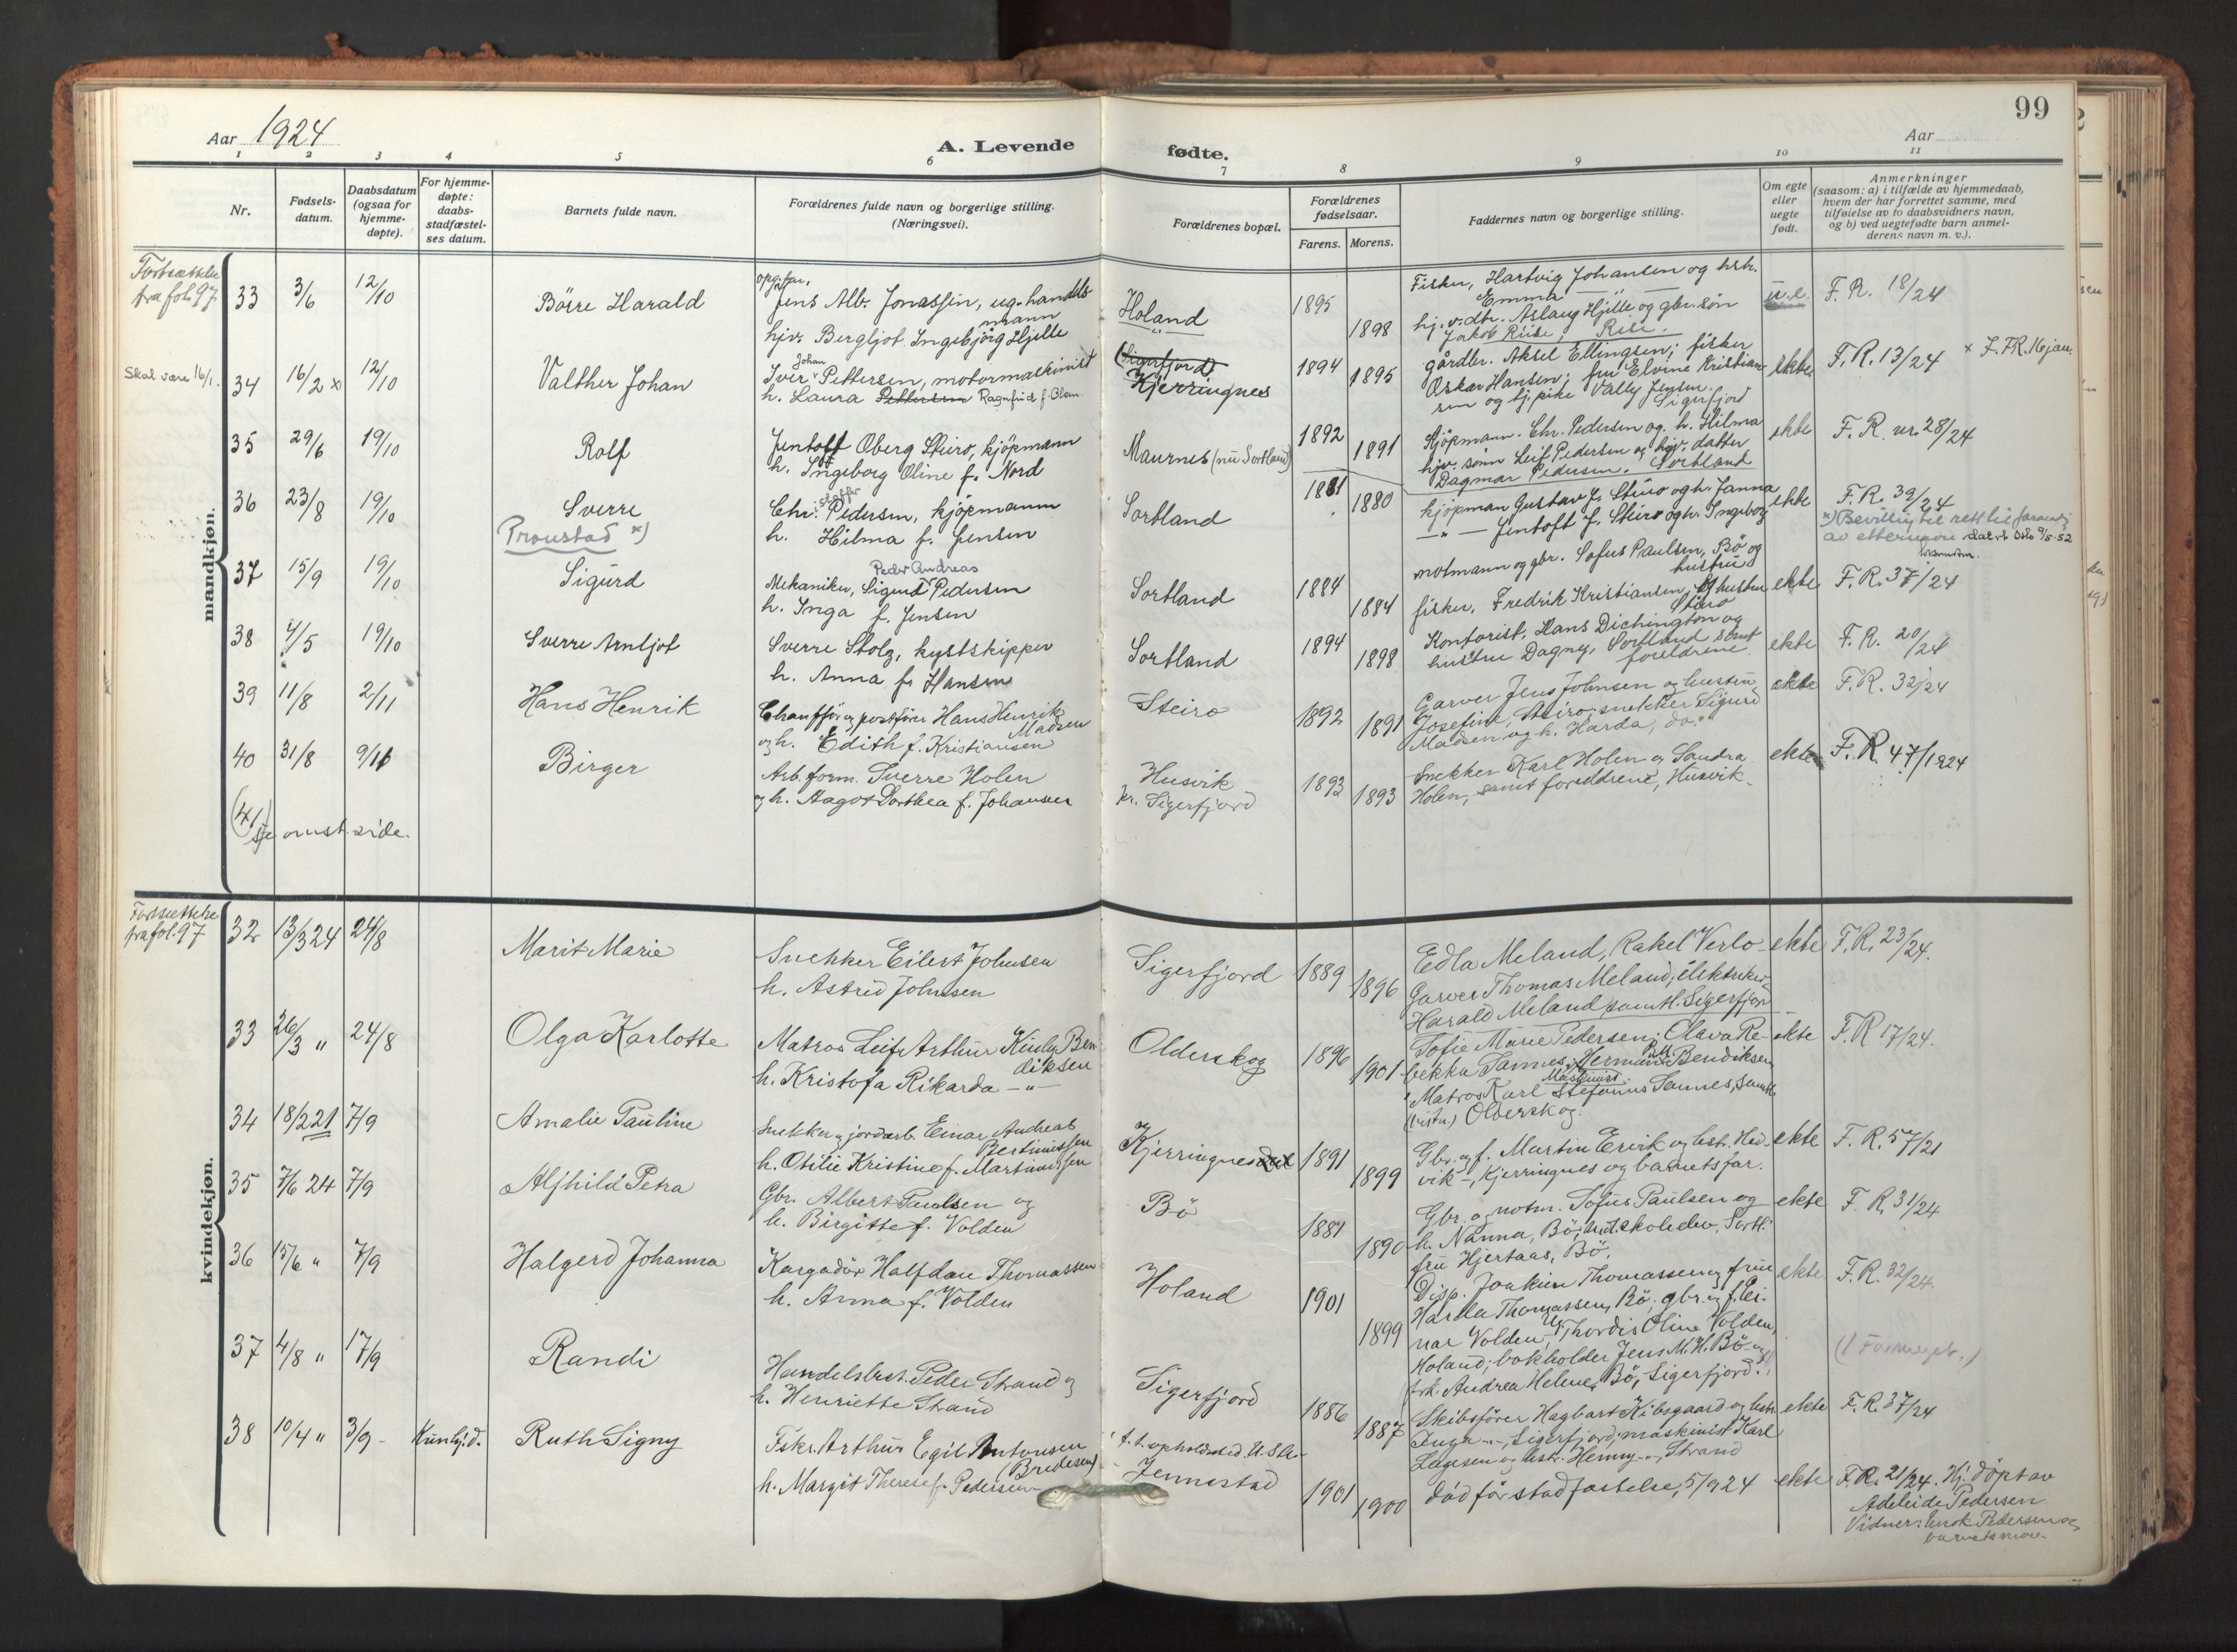 99
Aar 1924
A. Levende fødte.
Aar
1 2 3 4 5 6 7 8 9 10 11
Nr.
Fødsels-
datum.
Daabsdatum
(ogsaa for
hjemme-
døpte).
For hjemme-
døpte:
daabs-
stadfæstel-
ses datum.
Barnets fulde navn.
Forældrenes fulde navn og borgerlige stilling.
(Næringsvei).
Forældrenes bopæl.
Forældrenes
fødselsaar.
Farens. Morens.
Faddernes navn og borgerlige stilling.
Om egte
eller
uegte
født.
Anmerkninger
(saasom: a) i tilfælde av hjemmedaab,
hvem der har forrettet samme, med
tilføielse av to daabsvidners navn,
og b) ved uegtefødte barn anmel-
derens navn m. v.).
mandkjøn.
Fortsættelse
fra fol. 97
33 3/6 12/10 Börre Harald
Jens Alb. Jonassen, ug. handels-
mann
hjv. Bergljot Ingebjörg Hjelle
Holand 1895 1898
Fisker, Hartvig Johansen og hstr.
Emma
hj. v. dtr. Aslaug Hjelle og gbr. søn
Jakob Riise, Rise.
u.e. F. R. 18/24
Skal være 16/1.
34 16/2 x 12/10 Valther Johan
Iver Johan Pettersen, motormaskinist
h. Laura Pettersen Ragnfrid f. Olsen
(Sigerfjord)
Kjerringnes 1894 1895
gårdbr. Aksel Ellingsen; fisker
Oskar Hansen; fru Elvine Kristian-
sen og tj. pike Vally Jensen.
Sigerfjord
ekte F. R. 13/24 x F.R. 16 jan.
35 29/6 19/10 Rolf
Jentoft Oberg Steiro, kjöpmann
h. Ingeborg Oline f. Nord
Maurnes (nu Sortland) 1892 1891
Kjöpmann. Chr. Pedersen og h. Hilma
hjv. sönn Leif Pedersen og hjv. datter
Dagmar Pedersen. Sortland
ekte F. R. nr. 28/24
36 23/8 19/10 Sverre
Pronstad x)
Chr. Pedersen, kjöpmann
h. Hilma f. Jensen
Sortland 1881 1880
kjöpman Gustav J. Steiro og h. Janna
— " — Jentoft f. Steiro og h. Ingeborg
ekte F. R. 39/24
x) Bevilling til rett til forandr.
av etternavn dat. Oslo 9/5-52
37 15/9 19/10 Sigurd
Peder Andreas
Mekaniker, Sigurd Pedersen
h. Inga f. Jensen
Sortland 1884 1884
notmann og gbr. Sofus Paulsen, Bö og
hustru
fisker, Fredrik Kristiansen og hustru
Steiro
ekte F. R. 37/24
38 4/5 19/10 Sverre Arntljot
Sverre Stolz, kystskipper
h. Anna f. Hansen
Sortland 1894 1898
Kontorist, Hans Dichington og
hustru Dagny, Sortland samt
foreldrene.
ekte F. R. 20/24
39 11/8 2/11 Hans Henrik
Chaufför og postförer Hans Henrik
Madsen
og h. Edith f. Kristiansen
Steiro 1892 1891
Garver Jens Johnsen og hustru
Josefine, Steiro; snekker Sigurd
Madsen og h. Harda, do.
ekte F. R. 32/24
40 31/8 9/11 Birger
Arb. form. Sverre Holen
og h. Aagot Dorthea f. Johansen
Husvik
pr. Sigerfjord 1893 1893
Snekker Karl Holen og Sandra
Holen, samt foreldrene, Husvik.
ekte F. R. 47/1924
(41) se omst. side.
kvindekjøn.
Fortsættelse
fra fol. 97
32 13/3 24 24/8 Marit Marie
Snekker Eilert Johnsen
h. Astrid Johnsen
Sigerfjord 1889 1896
Edla Meland, Rakel Verlo
Garver Thomas Meland, elektriker
Harald Meland samtl. Sigerfjord
ekte F. R. 23/24.
33 26/3 " 24/8 Olga Karlotte
Matros Leif Arthur Kinly Ben-
diksen
h. Kristofa Rikarda — " —
Olderskog 1896 1901
Sofie Marie Pedersen, Olava Re-
bekka Sannes, Herman Bendiksen
Matros Karl Stefanus Sannes, samtl.
Olderskog.
ekte F. R 17/24.
34 18/2 21 7/9 Amalie Pauline
Snekker og jordarb. Einar Andreas
Bertinussen
h. Otilie Kristine f. Martinussen
Kjerringnes 1891 1899
Gbr. og f. Martin Ervik og hst. Hed-
vik —, Kjerringnes og barnets far.
ekte F. R. 57/21
35 7/6 24 7/9 Aljhild Petra
Gbr. Albert Paulsen og
h. Birgitte f. Volden
Bö 1881 1890
Gbr. og notm. Sofus Paulsen og
h. Nanna, Bö;
fru Hjertaas, Bö.
ekte F. R. 31/24
36 15/6 " 7/9 Halgerd Johanna
Kargadör Halfdan Thomassen
h. Anna f. Volden
Holand 1901 1899
Disp. Joakim Thomassen og frue
Harda Thomassen, Bö, gbr. og f. Ei-
nar Volden, Thordis Oline Volden,
Holand; bokholder Jens M. H. Bö og
frk. Andrea Helene Bö, Sigerfjord.
ekte F. R. 32/24.
37 4/8 " 17/9 Randi
Handelsbest. Peder Strand og
h. Henriette Strand
Sigerfjord 1886 1887
Skibsförer Hagbart Kibsgaard og hst.
Inga — " —, Sigerfjord; maskinist Karl
Legesen og hst. Henny — " — Strand
ekte F. R. 37/24
38 10/4 " 3/9 - Kun hj. d. Ruth Signy
Fskr. Arthur Egil Antonsen
(Bredesen)
h. Margit Therese f. Pedersen
f. t. opholdssted U.S.A.
Jennestad 1901 1900
död för stadfæstelse, 5/9 24
ekte F. R. 21/24. Hj. döpt av
Adeleide Pedersen
Vidner: Enok Pedersen og
barnets mor.